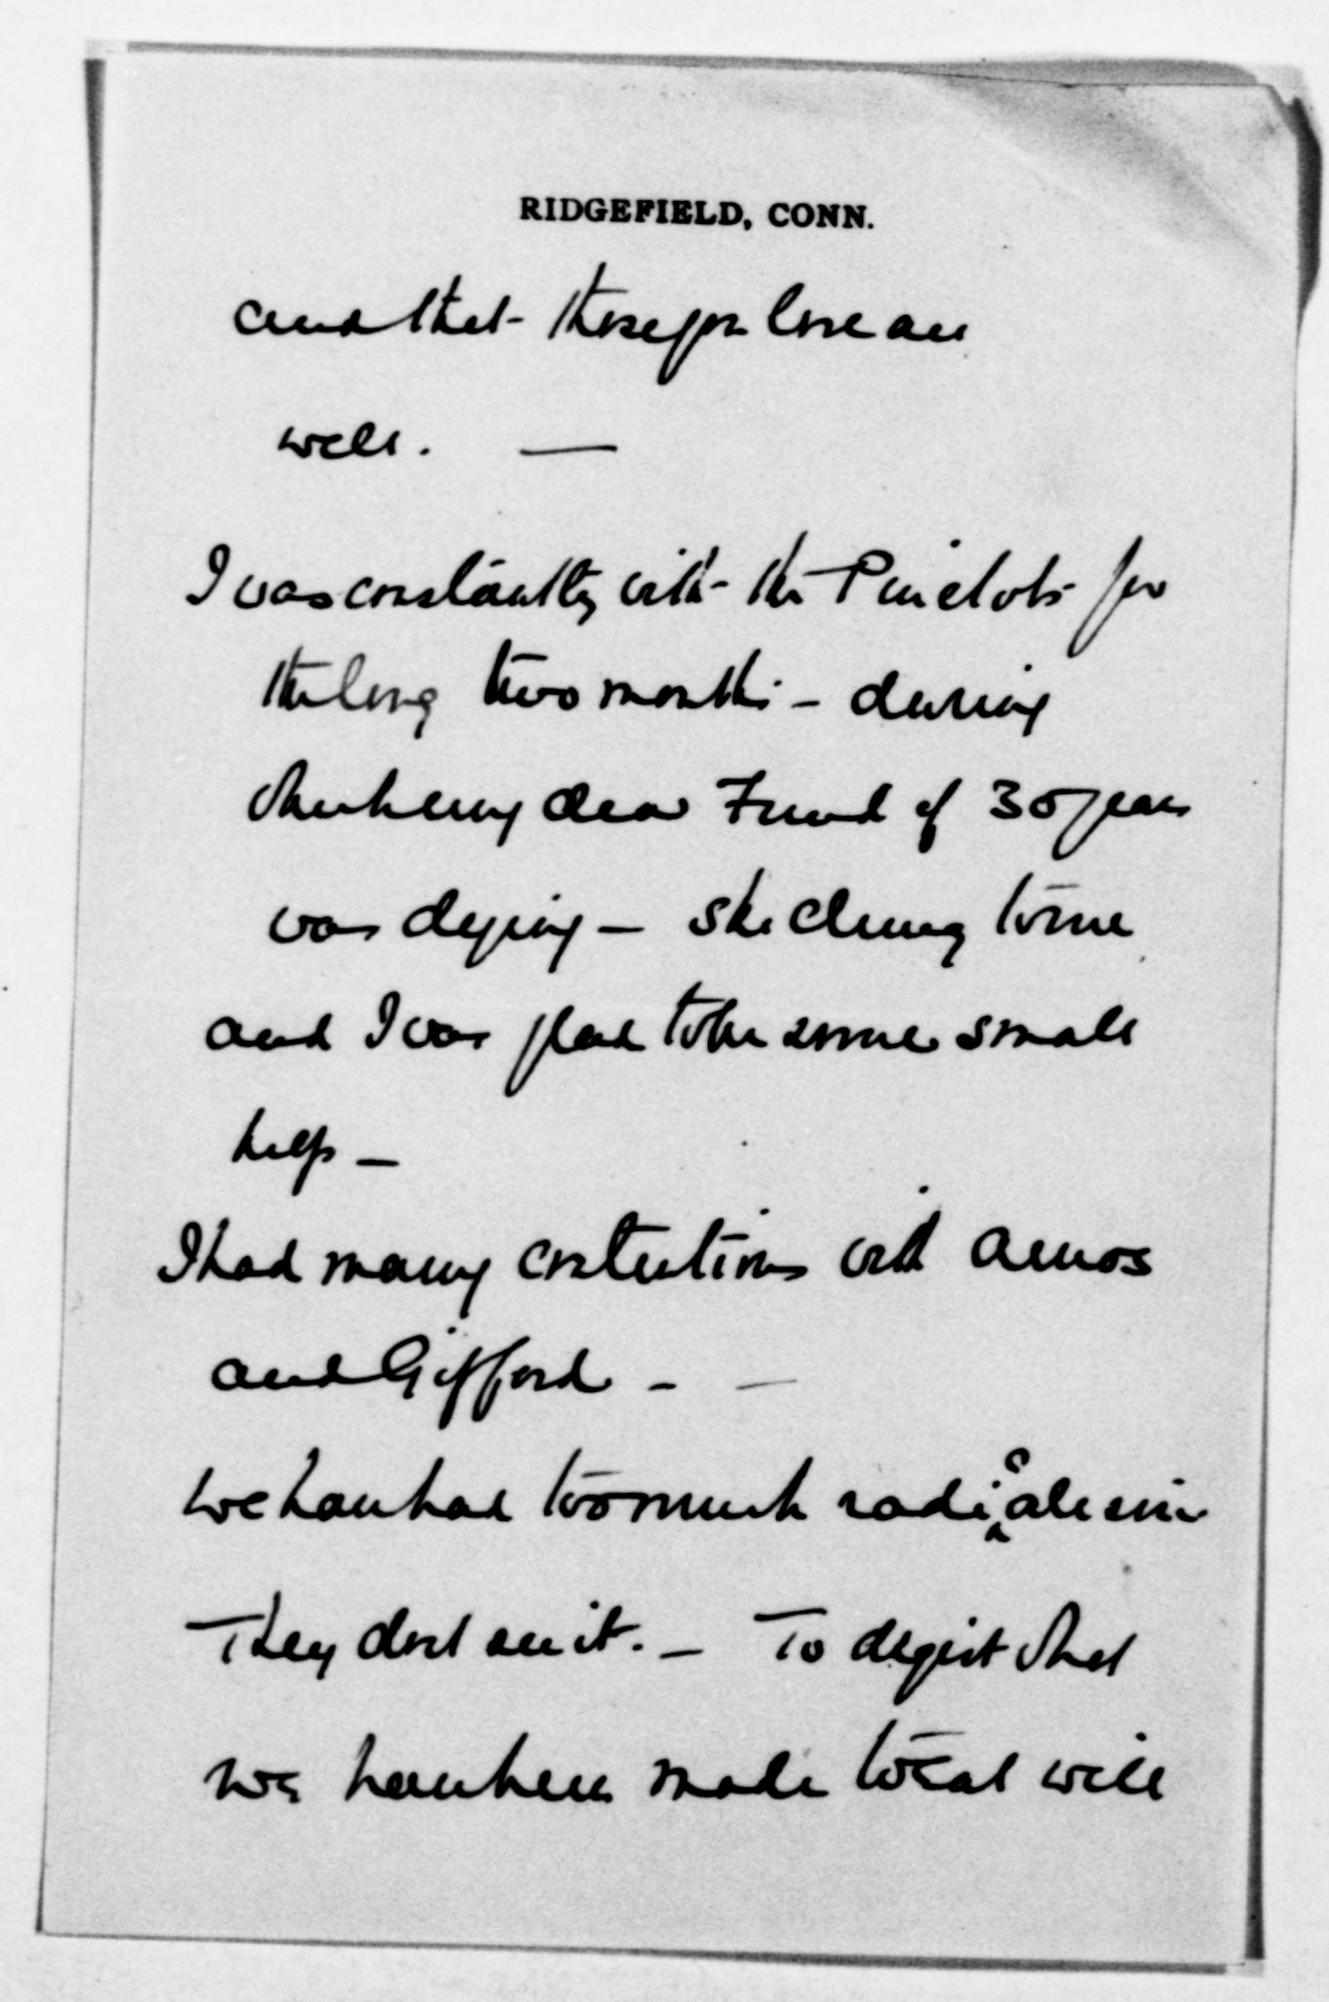 RIDGEFIELD, CONN.
and that - those you love are
well. —
I was constantly with the Pinchots for
the long two months - during
which my dear Friend of 30 years
was dying - She clung to me
and I was glad to be some small
help -
I had many contentions with Amos
and Gifford - -
we have had too much radicalism
They dont see it. - To digest what
we have been made to eat will